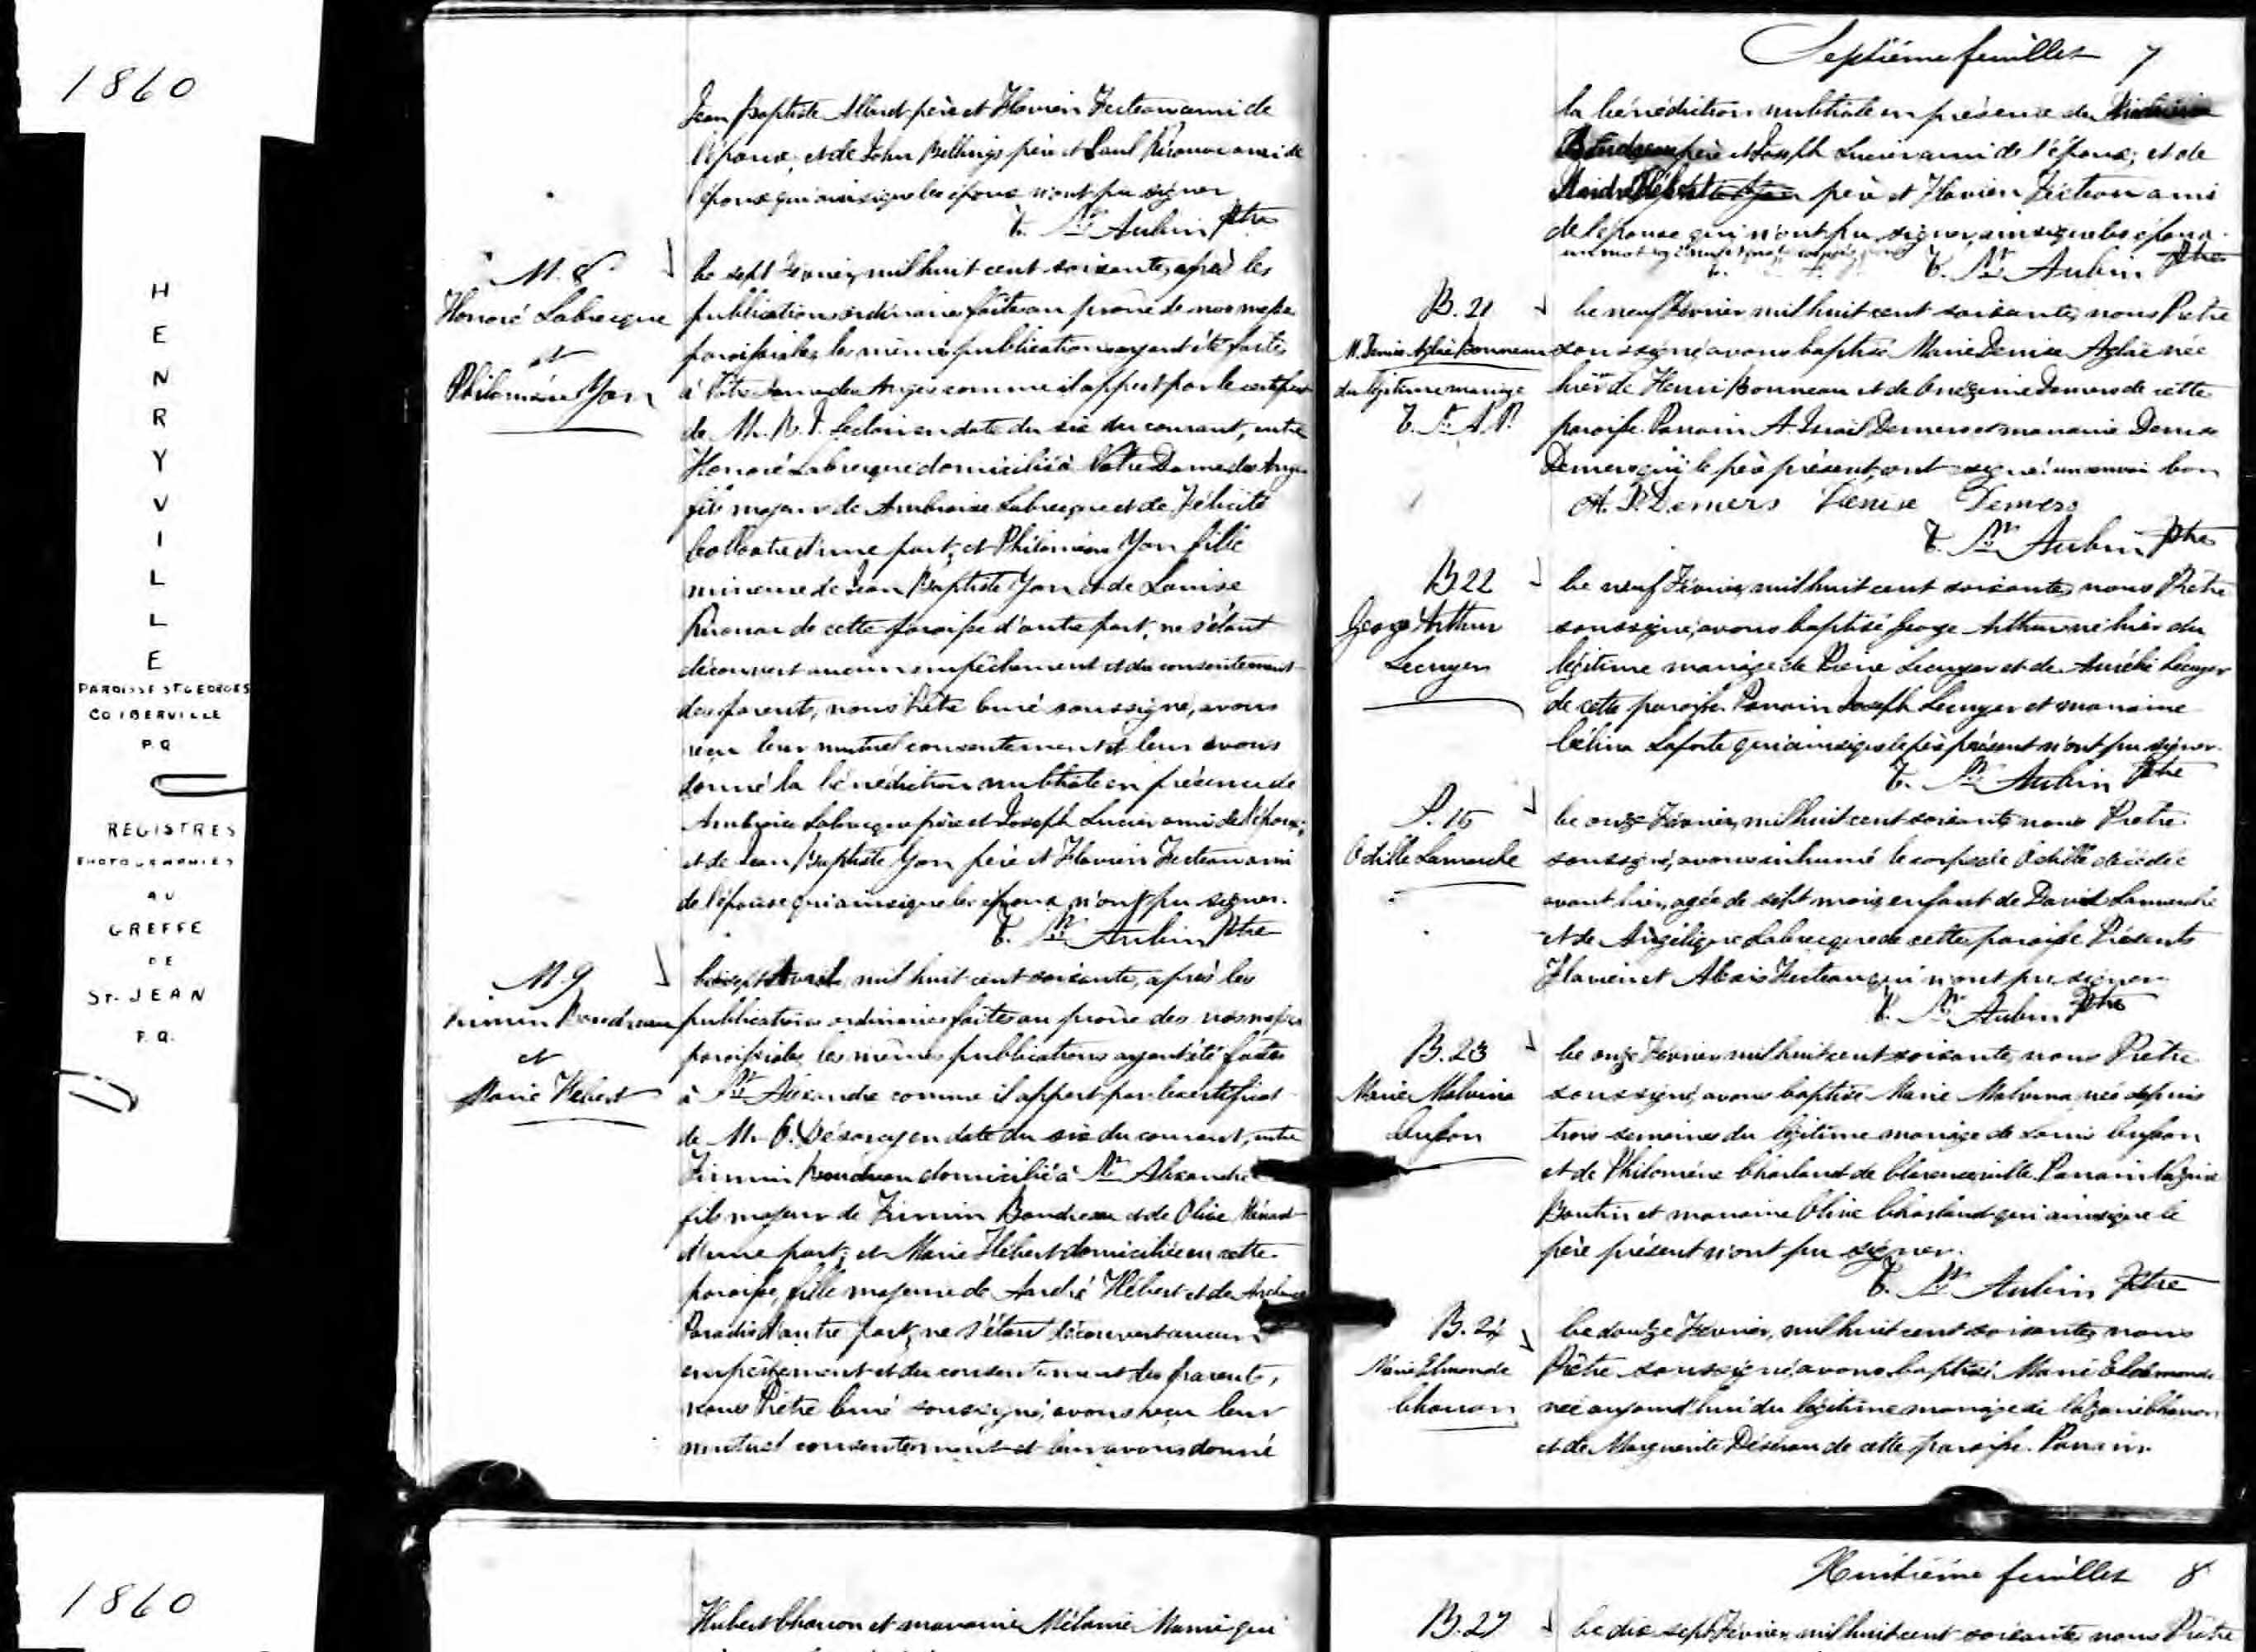 1860
HENRYVILLE
PAROISSE ST GEORGES
CO IBERVILLE
P Q
REGISTRES
PHOTOGRAPHIES
AU
GREFFE
DE
ST. JEAN
P. Q.
Jean Baptiste Allard père et Flavien Fecteau ami de
l'époux, et de John père et Paul ami de
l'épouse qui ainsi que les époux n'ont pu signer
T. St Aubin Ptre
M. 8
Honoré Labrecque
et
Philomène Yon
Le sept Février, mil huit cent soixante, après les
publications ordinaires faites au prône de nos messes
paroissiales, les mêmes publications ayant été faites
à Notre Dame des Anges comme il appert par le certificat
de Mr. en date du six du courant, entre
Honoré Labrecque domicilié à Notre Dame des Anges
fils majeur de Ambroise Labrecque et de Félicité
d'une part; et Philomène Yon fille
mineure de Jean Baptiste Yon et de Louise
de cette paroisse d'autre part, ne s'étant
découvert aucun empêchement et du consentement
des parents, nous Prêtre Curé soussigné, avons
reçu leur mutuel consentement et leur avons
donné la bénédiction nubtiale en présence de
Ambroise Labrecque père et Joseph Lucier ami de l'époux;
et de Jean Baptiste Yon père et Flavien Fecteau ami
de l'épouse qui ainsi que les époux n'ont pu signer.
T. St Aubin Ptre
M. 9
Firmin Boudreau
et
Marie Hébert
mil huit cent soixante, après les
publications ordinaires faites au prône des nos messes
paroissiales, les mêmes publications ayant été faites
à St Alexandre comme il appert par le certificat
de Mr. en date du six du courant, entre
Firmin Boudreau domicilié à St Alexandre
fils majeur de Firmin Boudreau et de Olive
d'une part; et Marie Hébert domiciliée en cette
paroisse, fille majeure de André Hébert et de
Paradis d'autre part, ne s'étant découvert aucun
empêchement et du consentement des parents,
nous Prêtre Curé soussigné, avons reçu leur
mutuel consentement et leur avons donné
Septième feuillet 7
la bénédiction nubtiale en présence de
père et Joseph Lucier ami de l'époux; et de
père et Flavien Fecteau ami
de l'épouse qui n'ont pu signer, ainsi que les époux.
T. St Aubin Ptre
B. 21
M. Denise Aglaé Bonneau
du légitime mariage
T. St A. P.
Le neuf Février mil huit cent soixante, nous Prêtre
soussigné, avons baptisé Marie Denise Aglaé née
hier de Henri Bonneau et de Demers de cette
paroisse. Parrain A. Israël Demers et marraine Denise
Demers qui le père présent, ont signé. un renvoi bon
A. I. Demers Denise Demers
T. St Aubin Ptre
B. 22
George Arthur
Lecuyer
Le neuf Février, mil huit cent soixante, nous Prêtre
soussigné, avons baptisé George Arthur né hier du
légitime mariage de Pierre Lecuyer et de Aurélie Lecuyer
de cette paroisse. Parrain Joseph Lecuyer et marraine
Célina Laporte qui ainsi que le père présent n'ont pu signer.
T. St Aubin Ptre
S. 15
Odille Lamarche
Le onze Février, mil huit cent soixante nous Prêtre
soussigné, avons inhumé le corps de Odille décédée
avant hier, agée de sept mois, enfant de David Lamarche
et de Angélique Labrecque de cette paroisse. Présents
Flavien et Fecteau qui n'ont pu signer
T. St Aubin Ptre
B. 23
Marie Malvina
Cusson
Le onze Février mil huit cent soixante, nous Prêtre
soussigné, avons baptisé Marie Malvina née depuis
trois semaines du légitime mariage de Louis Cusson
et de Philomène Charland de Clarenceville. Parrain
Boutin et marraine Olive Charland qui ainsi que le
père présent n'ont pu signer.
T. St Aubin Ptre
B. 24
Marie Elmonde
Charron
Le douze Février, mil huit cent soixante, nous
Prêtre soussigné, avons baptisé Marie
née aujourd'hui du légitime mariage de Charron
et de Marguerite de cette paroisse. Parrain
1860
Hubert Charron et marraine Mélanie qui
Huitième feuillet 8
B. 27
Le dix sept Février, mil huit cent soixante nous Prêtre